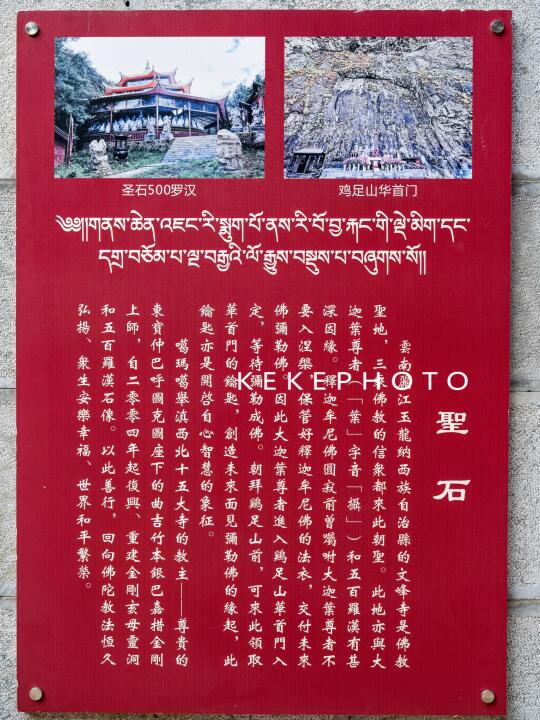 圣石500罗汉
鸡足山华首门
༄༅།།གནས་ཆེན་འཇང་རི་སྨུག་པོ་ནས་རི་བོ་བྱ་རྐང་གི་ལྡེ་མིག་དང་
དགྲ་བཅོམ་པ་ལྔ་བརྒྱའི་ལོ་རྒྱུས་བསྡུས་པ་བཞུགས་སོ།།
KEKEPHOTO
聖石
雲南麗江玉龍納西族自治縣的文峰寺是佛教
聖地，三乘佛教的信衆都來此朝聖。此地亦與大
迦葉尊者（「葉」字音「攝」）和五百羅漢有甚
深因緣。釋迦牟尼佛圓寂前曾囑咐大迦葉尊者不
要入涅槃，保管好釋迦牟尼佛的法衣，交付未來
佛彌勒佛。因此大迦葉尊者進入鷄足山華首門入
定，等待彌勒成佛。朝拜鷄足山前，可來此領取
華首門的鑰匙，創造未來面見彌勒佛的緣起，此
鑰匙亦是開啓自心智慧的象征。
噶瑪噶舉滇西北十五大寺的教主——尊貴的
東寶仲巴呼圖克圖座下的曲吉竹本銀巴嘉措金剛
上師，自二零零四年起復興、重建金剛亥母靈洞
和五百羅漢石像。以此善行，回向佛陀教法恒久
弘揚、衆生安樂幸福、世界和平繁榮。